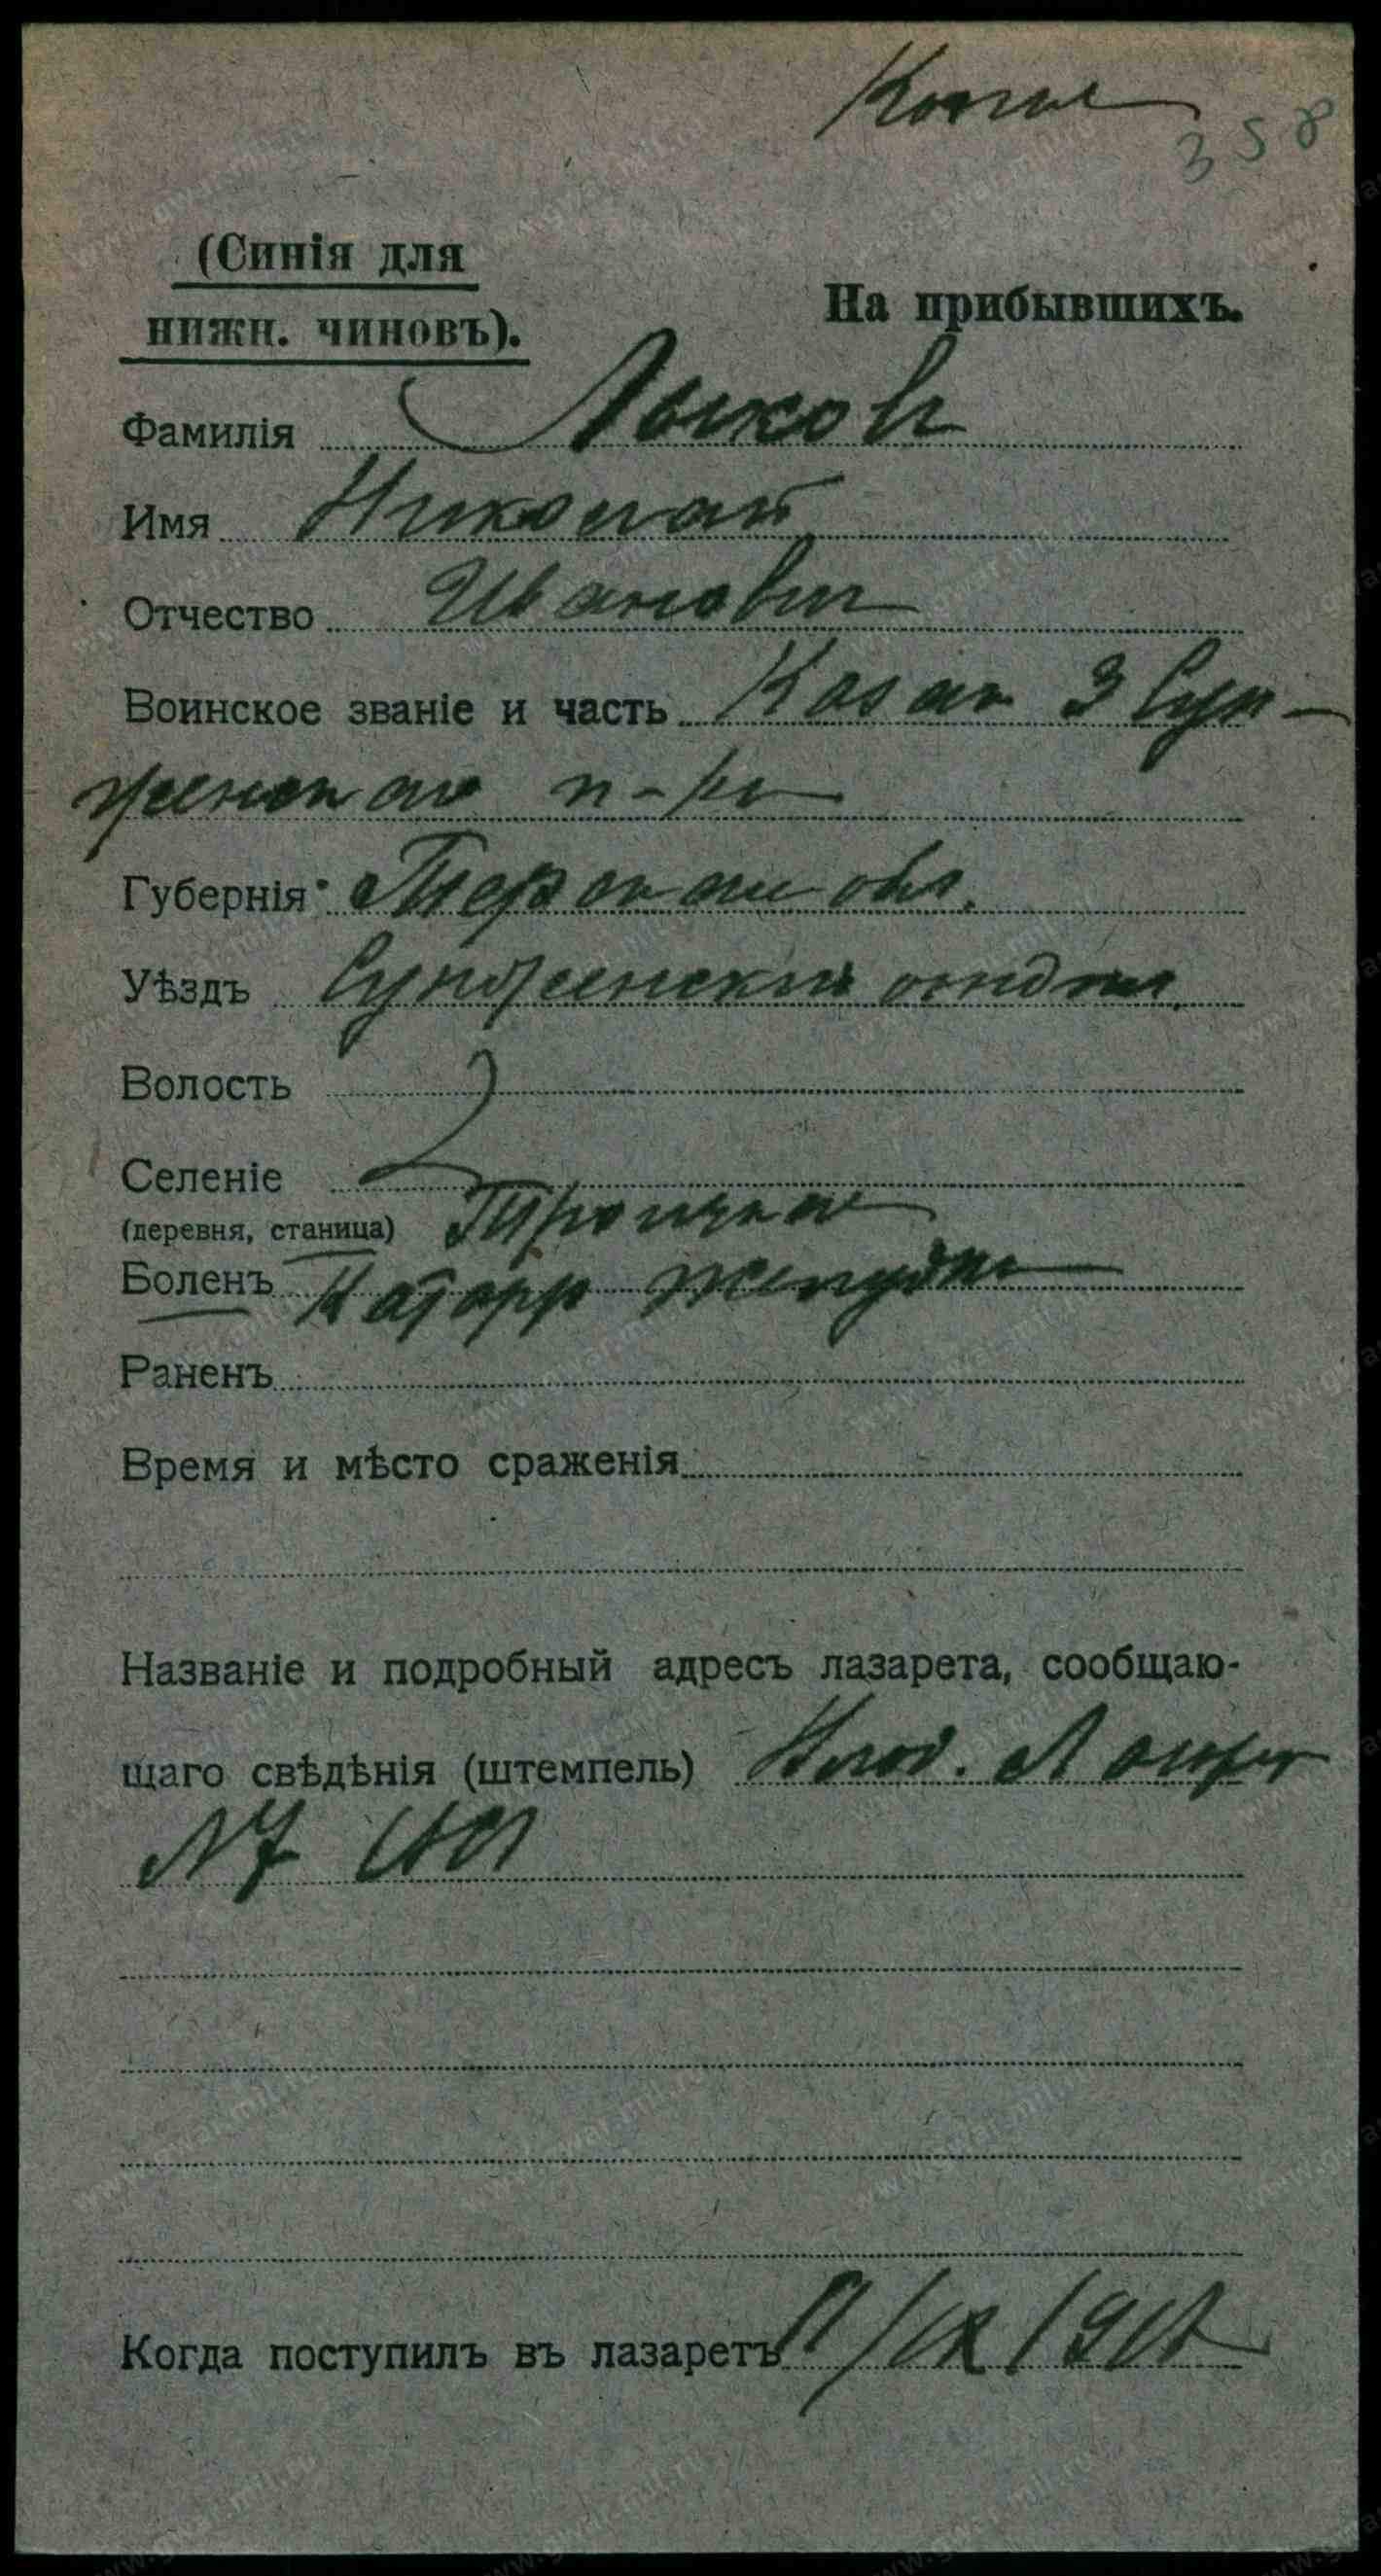 Копия
358
(Синія для
нижн. чиновъ).
На прибывшихъ.
Фамилія Лыков
Имя Николай
Отчество Иванович
Воинское званіе и часть Казак 3 Сун-
женского п-ка
Губернія Терская обл.
Уѣздъ Сунженский отдел
Волость
Селеніе
(деревня, станица) Троицкая
Боленъ Катарр желудка
Раненъ
Время и мѣсто сраженія
Названіе и подробный адресъ лазарета, сообщаю-
щаго свѣдѣнія (штемпель)
№ 7
Когда поступилъ въ лазаретъ